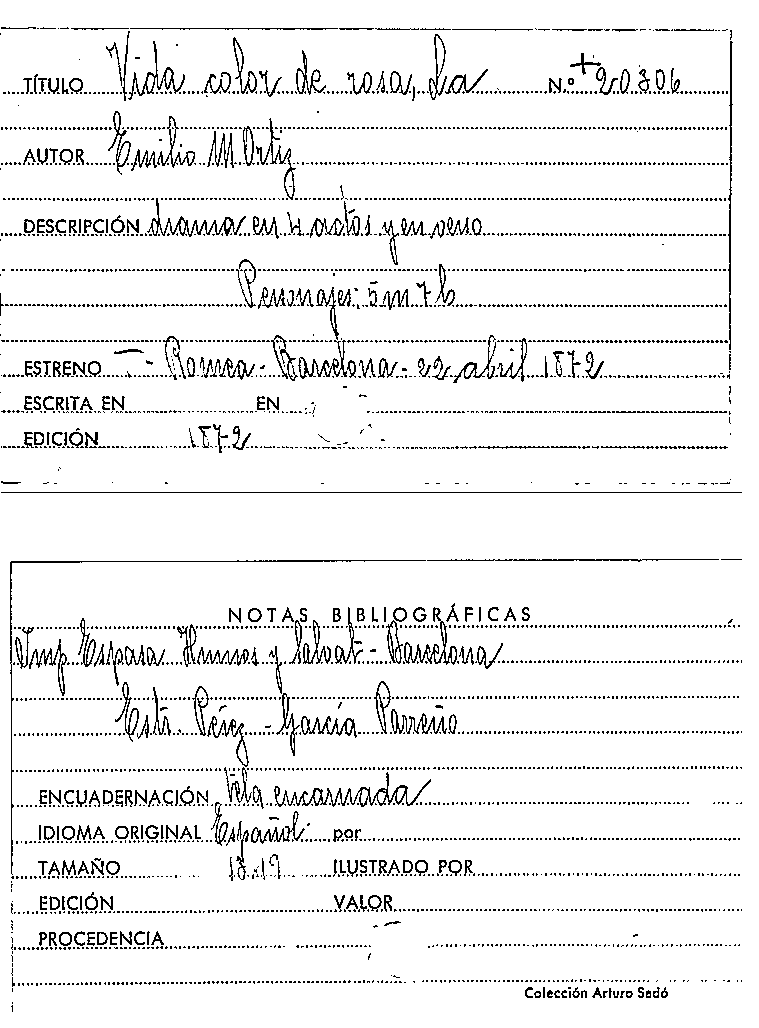 TÍTULO Vida color de rosa, La N.º +20306
AUTOR Emilio M. Ortiz
DESCRIPCIÓN drama en 4 actos y en verso
Personajes: 5m 7h
ESTRENO T- Romea - Barcelona - 22 abril 1872
ESCRITA EN EN
EDICIÓN 1872
NOTAS BIBLIOGRÁFICAS
Imp Espasa Hnnos y Salvat - Barcelona
Estr. Pérez - García Parreño
ENCUADERNACIÓN Tela encarnada
IDIOMA ORIGINAL Español por
TAMAÑO 13.19 ILUSTRADO POR
EDICIÓN VALOR
PROCEDENCIA
Colección Arturo Sedó